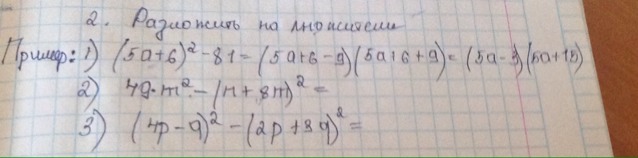 2. Разложить на множители
Пример: 1) (5a+6)² - 81 = (5a+6-9)(5a+6+9) = (5a-3)(5a+15)
2) 49m² - (n+8m)² =
3) (4p-q)² - (2p+3q)² =